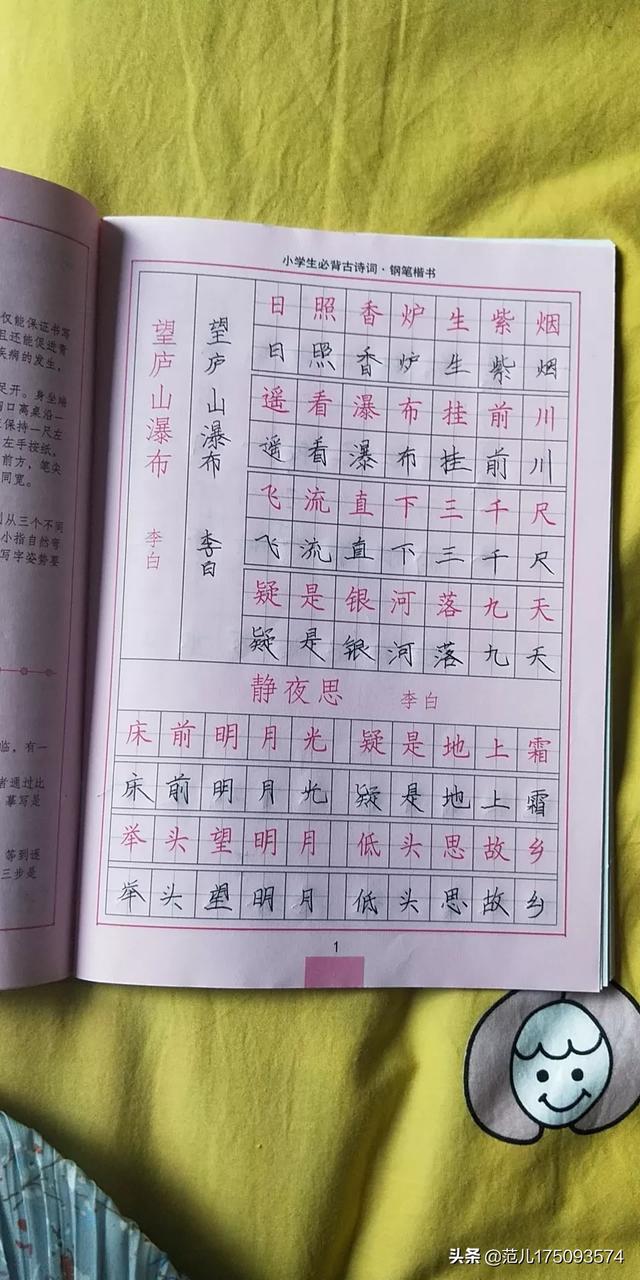 仅能保证书写
且还能促进青
疾病的发生，
足开。身坐端
胸口离桌沿一
保持一尺左
左手按纸，
前方，笔尖
同宽。
从三个不同
小指自然弯
写字姿势要
临，有一
者通过比
摹写是
等到逐
三步是
小学生必背古诗词·钢笔楷书
望庐山瀑布 李白
望庐山瀑布 李白
日照香炉生紫烟
日照香炉生紫烟
遥看瀑布挂前川
遥看瀑布挂前川
飞流直下三千尺
飞流直下三千尺
疑是银河落九天
疑是银河落九天
静夜思 李白
床前明月光 疑是地上霜
床前明月光 疑是地上霜
举头望明月 低头思故乡
举头望明月 低头思故乡
1
头条 @范儿175093574